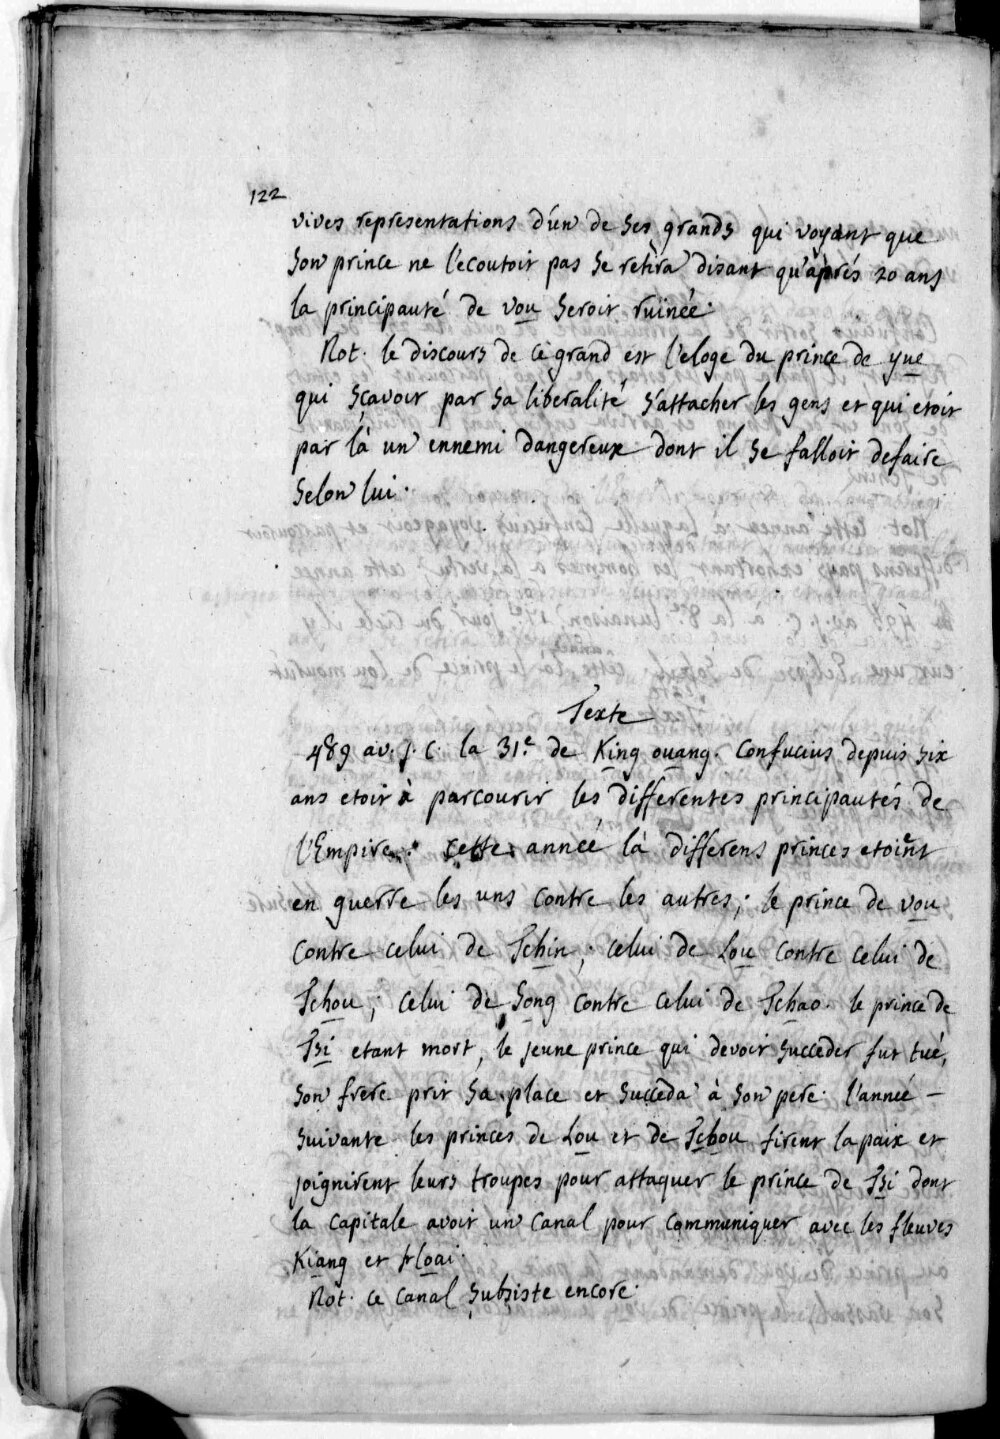 122
vives representations d'un de ses grands qui voyant que
son prince ne l'ecoutoit pas se retira disant qu'aprés 20 ans
la principauté de vou seroit ruinée.
Not. le discours de ce grand est l'eloge du prince de yue
qui sçavoit par sa liberalité s'attacher les gens et qui etoit
par là un ennemi dangereux dont il se falloit defaire
selon lui.
Texte
489 av. J. C. la 31.e de King ouang. Confucius depuis six
ans etoit à parcourir les differentes principautés de
l'Empire. cette année là differens princes etoint
en guerre les uns contre les autres; le prince de vou
contre celui de Tchin; celui de Lou contre celui de
Tchou; celui de Song contre celui de Tchao. le prince de
Tsi etant mort, le jeune prince qui devoit succeder fut tué,
son frere prit sa place et succeda à son pere. l'année -
suivante les princes de Lou et de Tchou firent la paix et
joignirent leurs troupes pour attaquer le prince de Tsi dont
la capitale avoit un canal pour communiquer avec les fleuves
Kiang et hoai.
Not. ce canal subsiste encore.